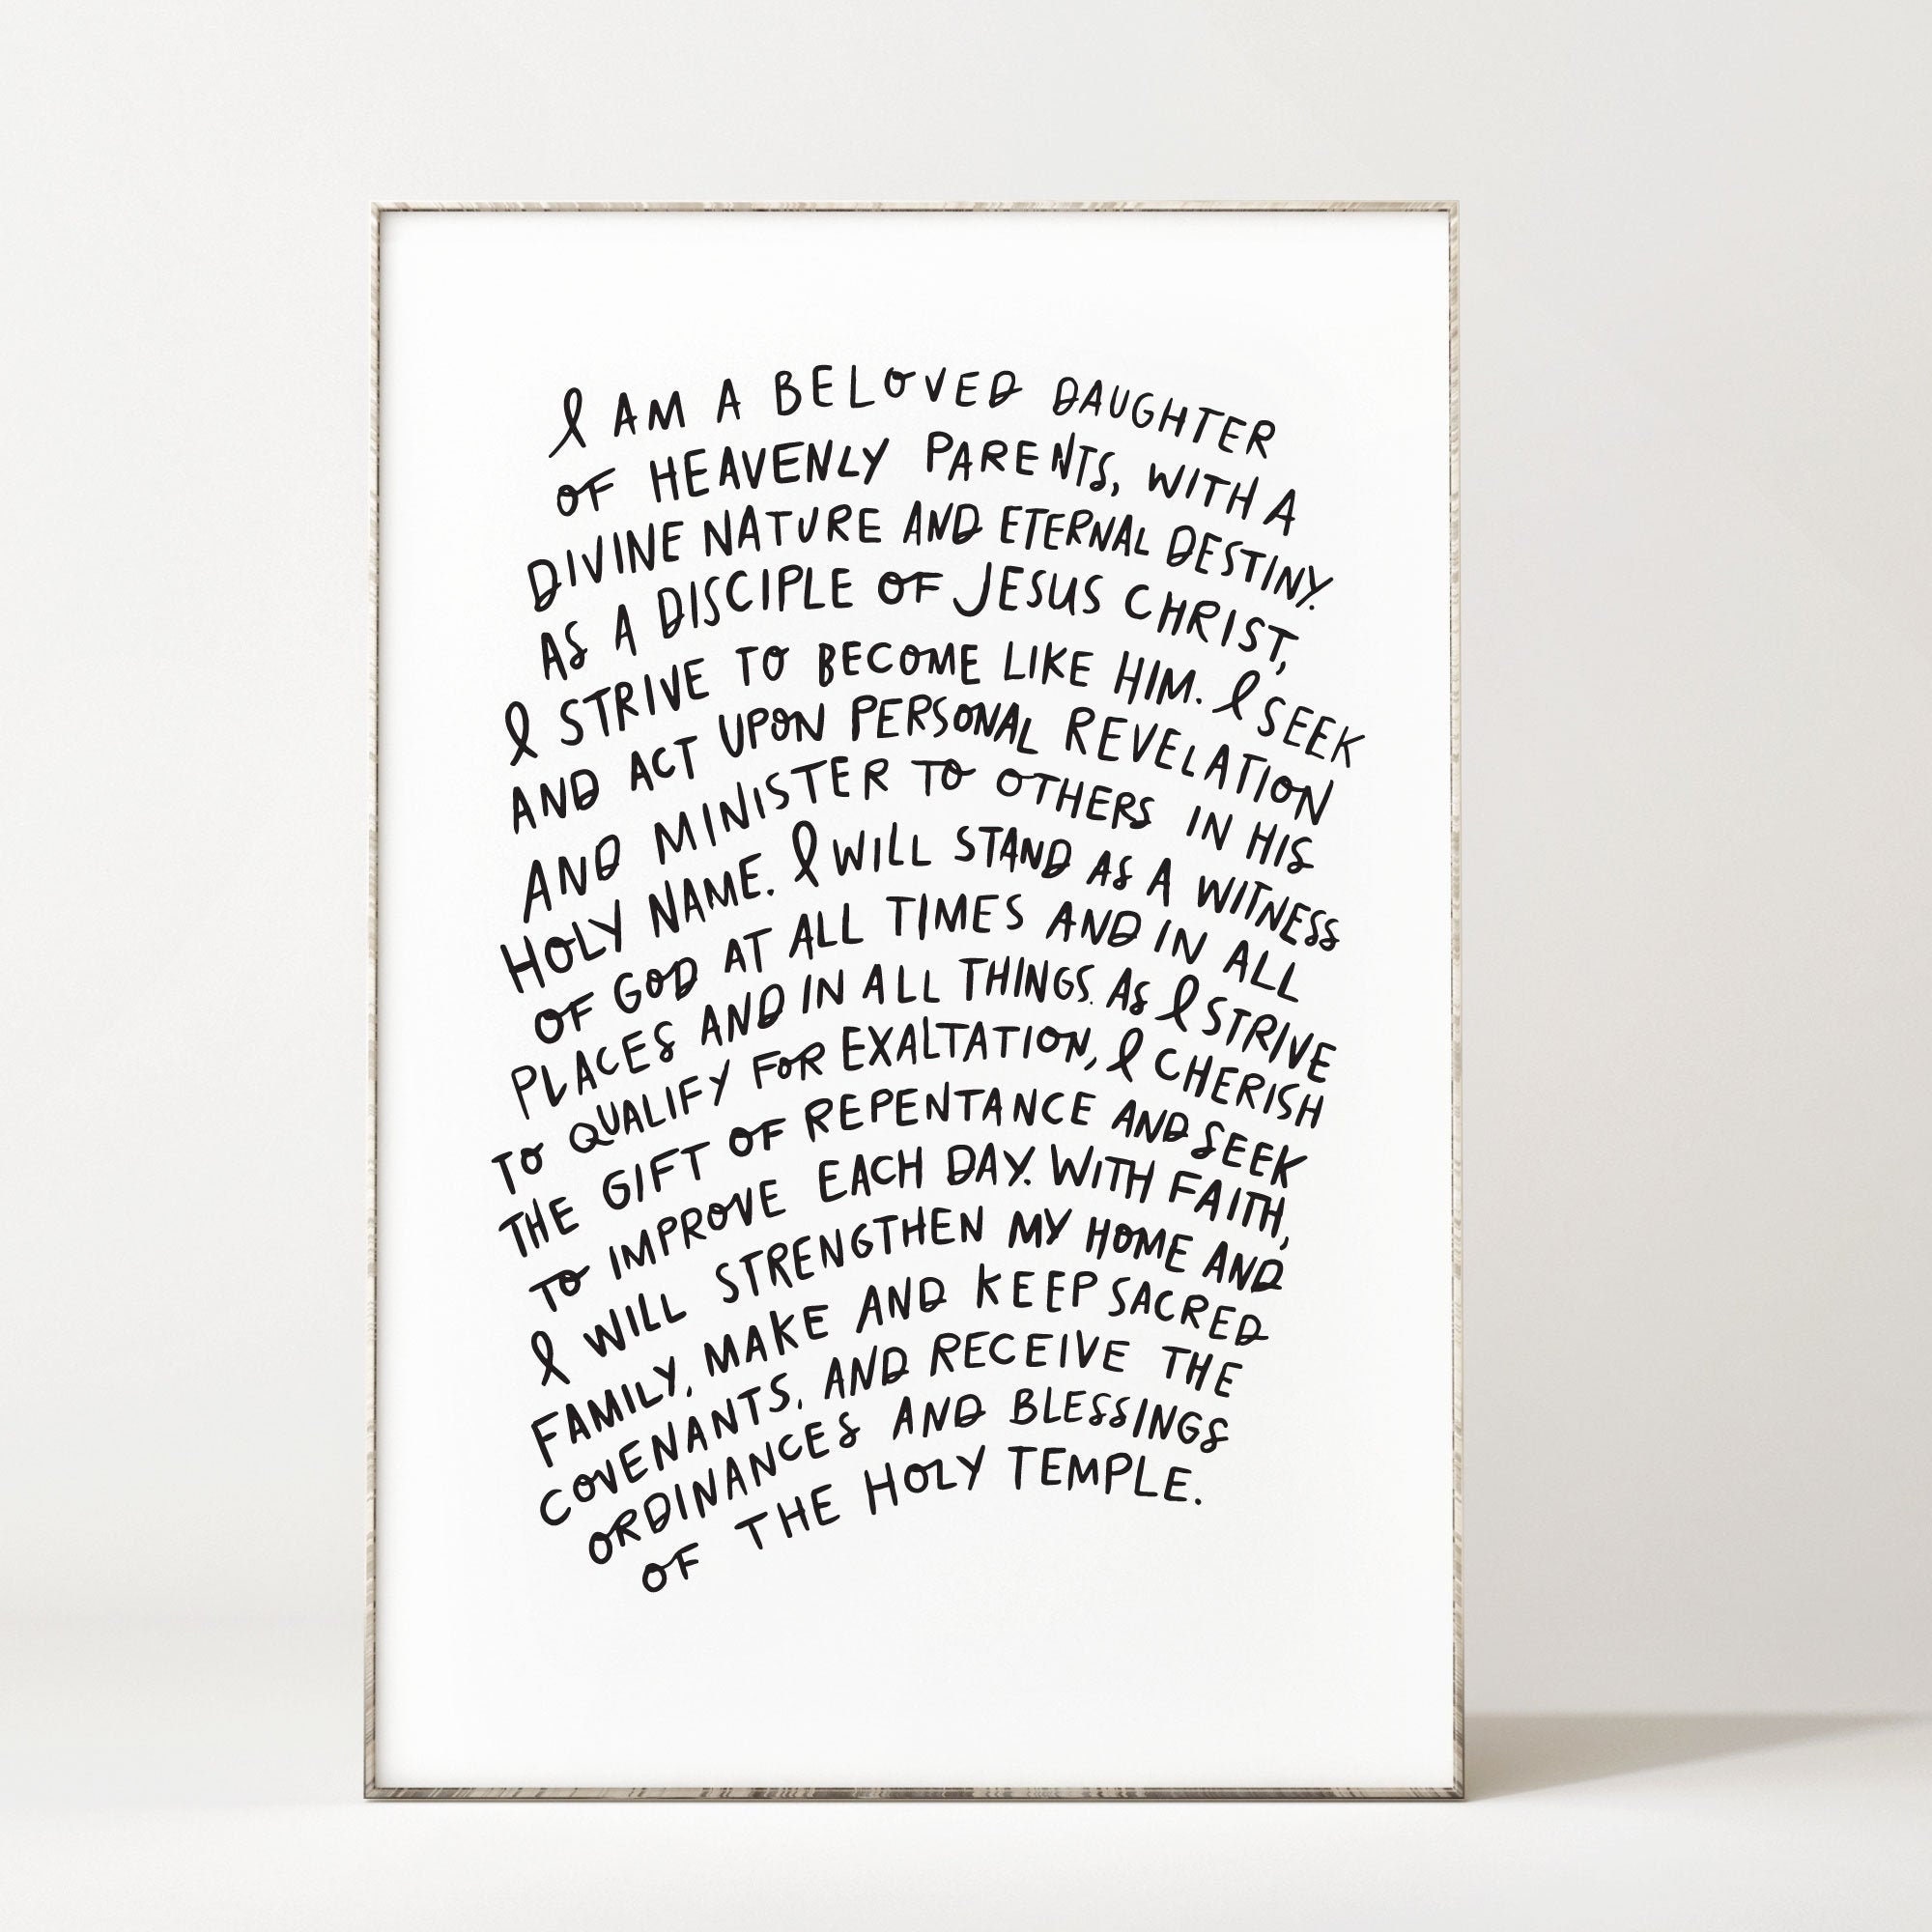 I AM A BELOVED DAUGHTER
OF HEAVENLY PARENTS, WITH A
DIVINE NATURE AND ETERNAL DESTINY.
AS A DISCIPLE OF JESUS CHRIST,
I STRIVE TO BECOME LIKE HIM. I SEEK
AND ACT UPON PERSONAL REVELATION
AND MINISTER TO OTHERS IN HIS
HOLY NAME. I WILL STAND AS A WITNESS
OF GOD AT ALL TIMES AND IN ALL
PLACES AND IN ALL THINGS. AS I STRIVE
TO QUALIFY FOR EXALTATION, I CHERISH
THE GIFT OF REPENTANCE AND SEEK
TO IMPROVE EACH DAY. WITH FAITH,
I WILL STRENGTHEN MY HOME AND
FAMILY, MAKE AND KEEP SACRED
COVENANTS, AND RECEIVE THE
ORDINANCES AND BLESSINGS
OF THE HOLY TEMPLE.